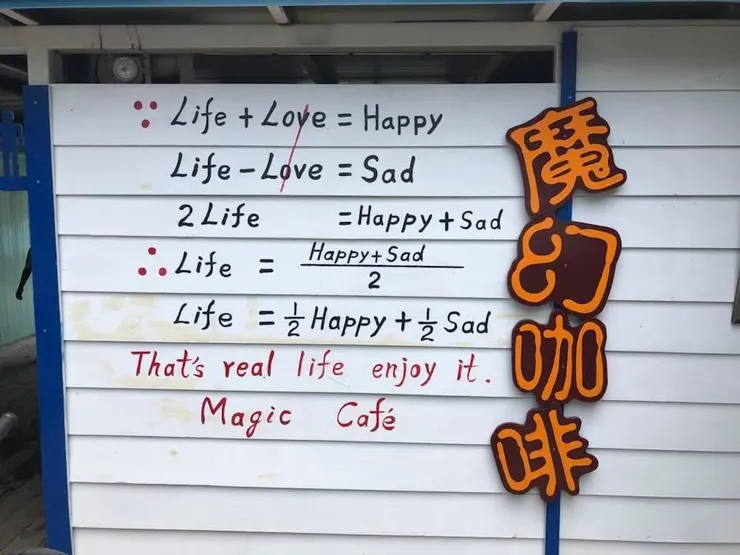 ∵ Life + Love = Happy
Life - Love = Sad
2 Life = Happy + Sad
∴ Life = Happy + Sad / 2
Life = 1/2 Happy + 1/2 Sad
That's real life enjoy it.
Magic Café
魔幻咖啡